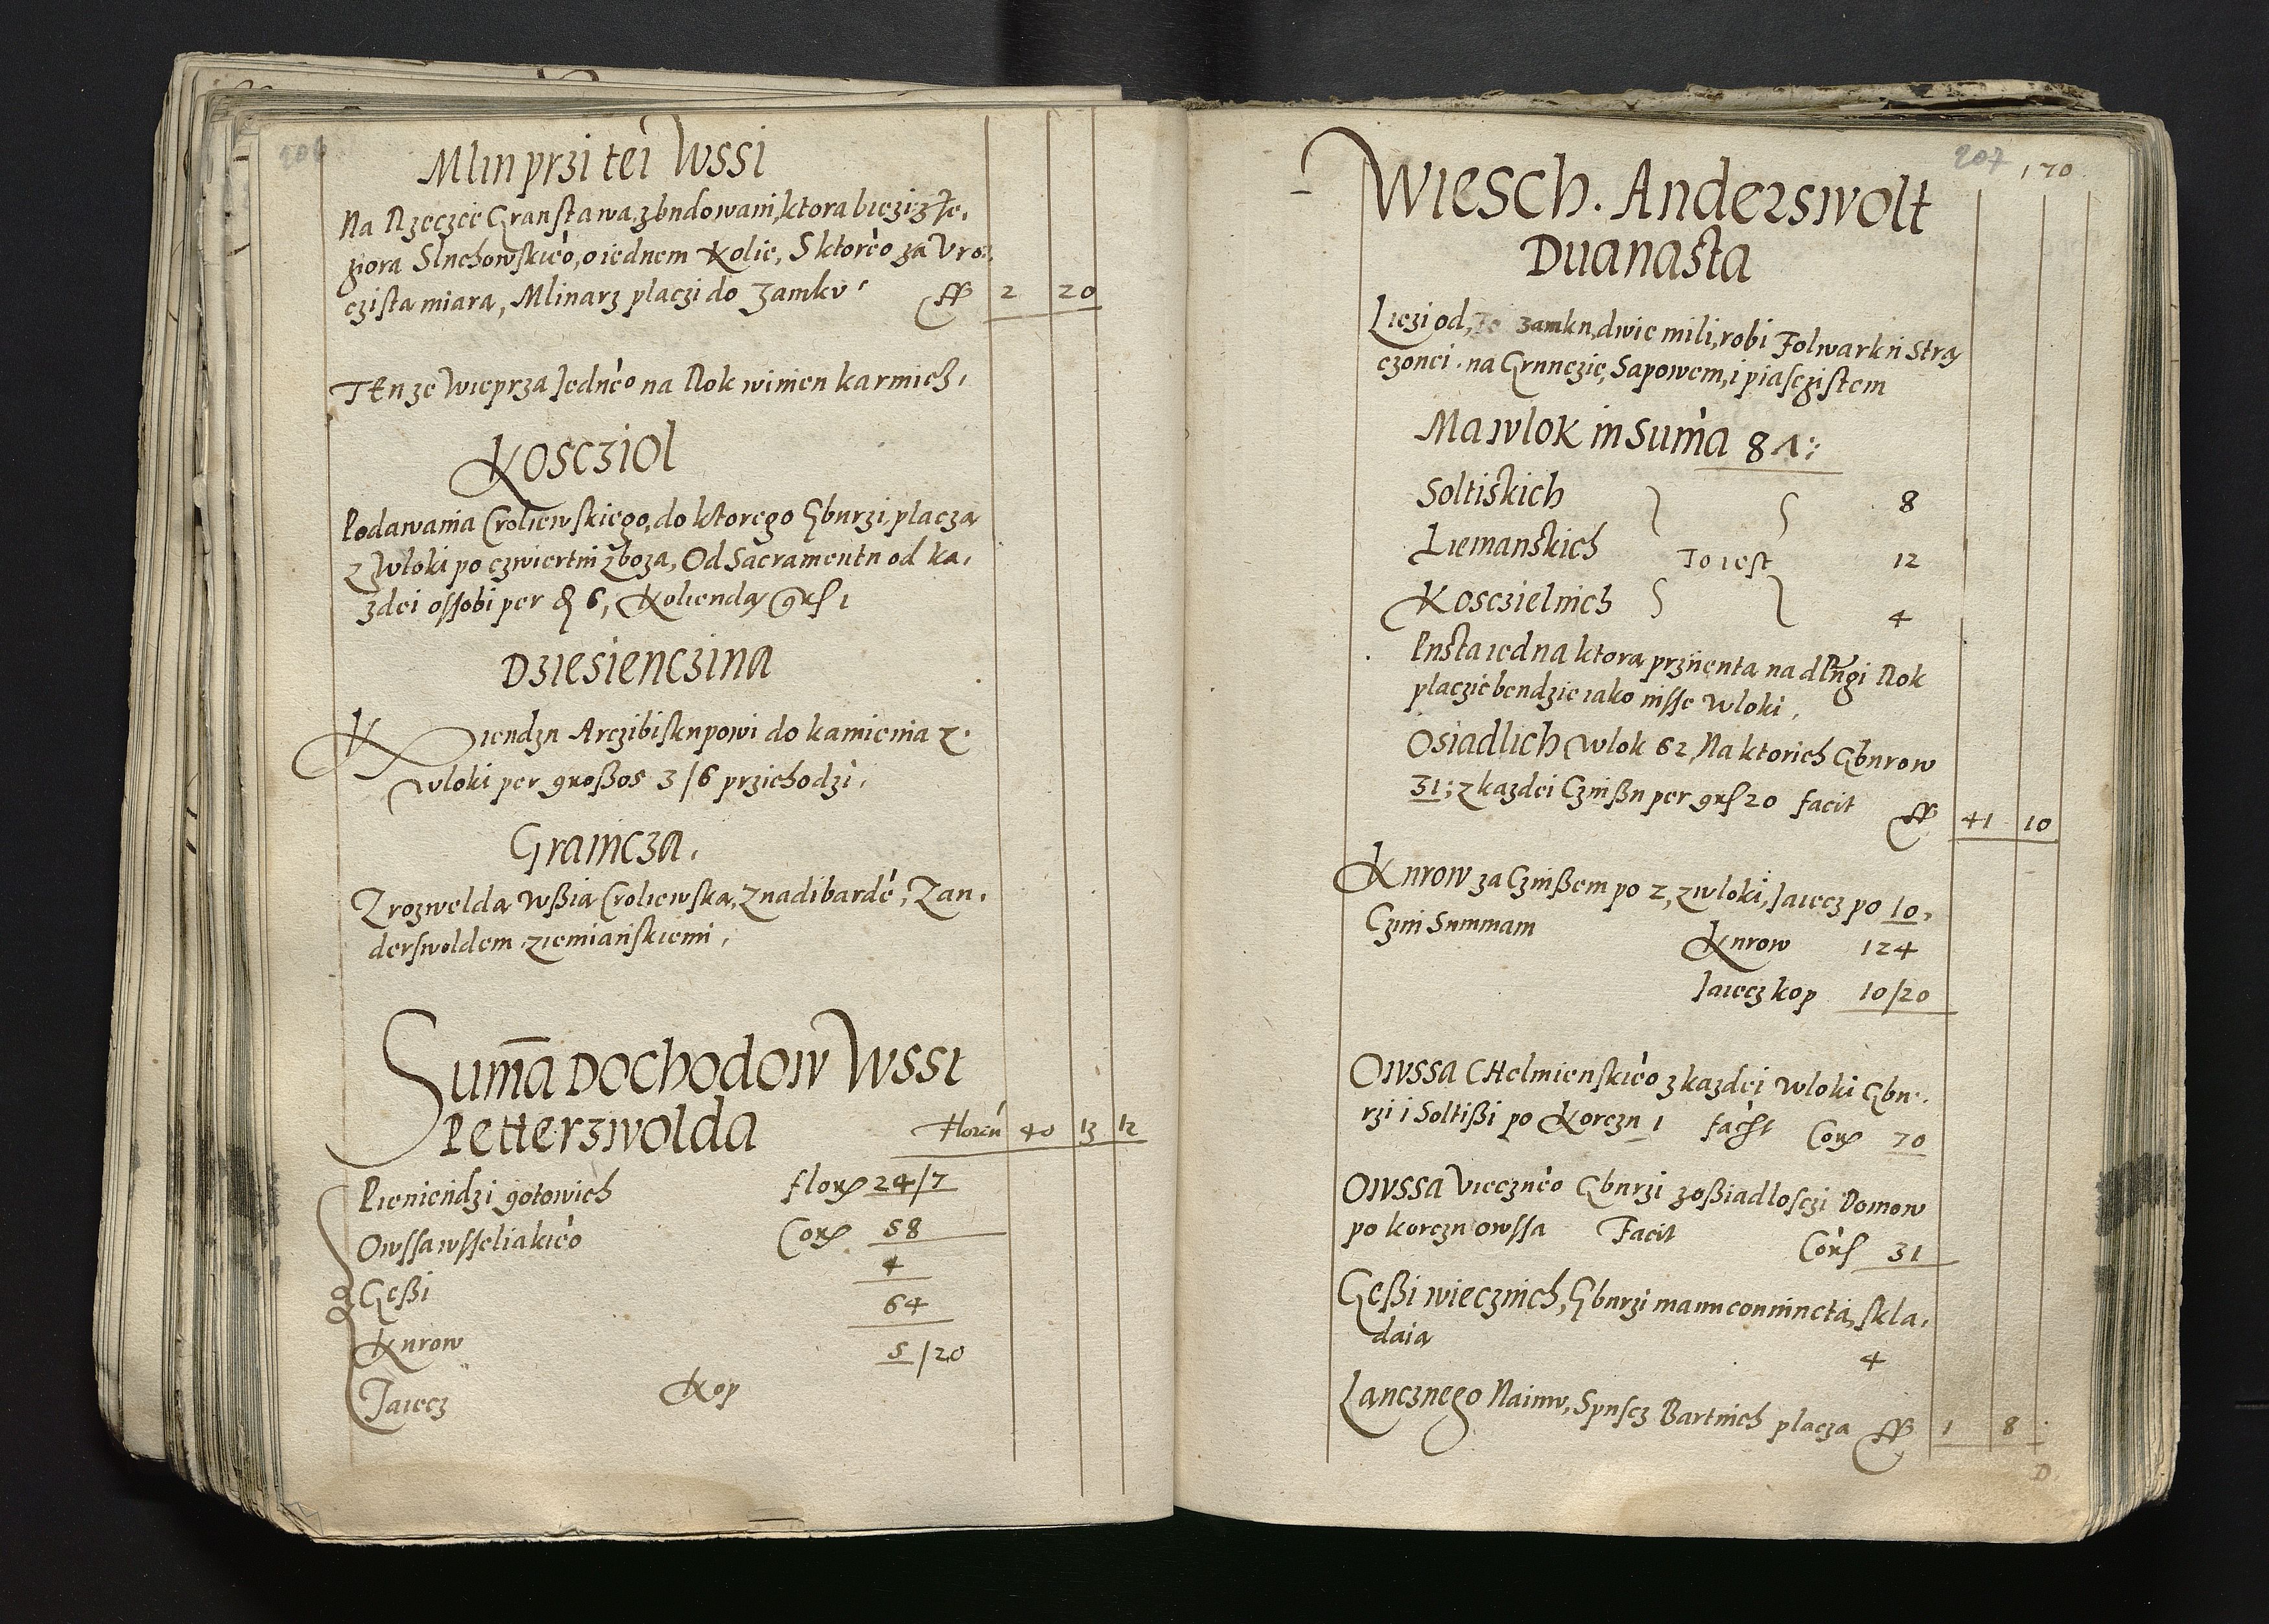 206
Mlin przi tei Wssi
Na Rzeczce Granstawa, zbudowani, ktora bieżi z Ie,
ziora Sluchowskieo, o iednem Kolie, S ktoreo za Vro,
czista miara, Mlinarz placzi do Zamku ff 2 20
TEnze Wieprza Jedneo na Rok winien karmicz,
Koscziol
Podawania Croliewskiego, do ktorego Gburzi placza
z Wloki po czwiertni zboza, Od Sacramentu od ka,
zdei ossobi per 6, Kolienda grs 1
Dziesienczina
Kxiendzu Arczibiskupowi do kamienia z
wloki per großos 3/6 przichodzi,
Grainicza,
Z rozwelda Wßia Croliewska, Z nadibarde, Z an,
derswoldem ziemianskiemi,
Suma Dochodow Wssi
Petterzwolda Floren 40 13 12
Pieniendzi gotowich flor 24/7
Owssa wsseliakieo Cor 58
4
Geßi 64
Kurow 5/20
Jaiecz Kop
207 170
Wiesch. Anderswolt
Duanasta
Liezi od, Zamku, dwie mili, robi Folwarku Stra
czonei na Gruncie, Sapowem, i piasczistem
Ma wlok in Suma 81:
Soltiskich 8
Liemanskich To iest 12
Kosczielnich 4
Pusta iedna ktora przijenta na dlugi Rok
placzic bendzie iako insse Wloki,
Osiadlich Wlok 62, Na ktorich Gburow
31; z kazdei Czinßu per grs 20 facit ff 41 10
Kurow za Czinßem po 2, z wloki, Jaiecz po 10,
Czini Summam
Kurow 124
Jaiecz kop 10/20
Owssa CHelmienskieo z kazdei Wloki Gbu,
rzi i Soltißi po Korczu 1 facit Cor 70
Owssa Vieczneo Gburzi z oßiadlosczi Domow
po korczu owssa Facit Cors 31
Geßi wiecznich, Gburzi manu coniuncta, skla,
daia
4
Lancznego Naimu, Spuscz Bartnich placza ff 1 8